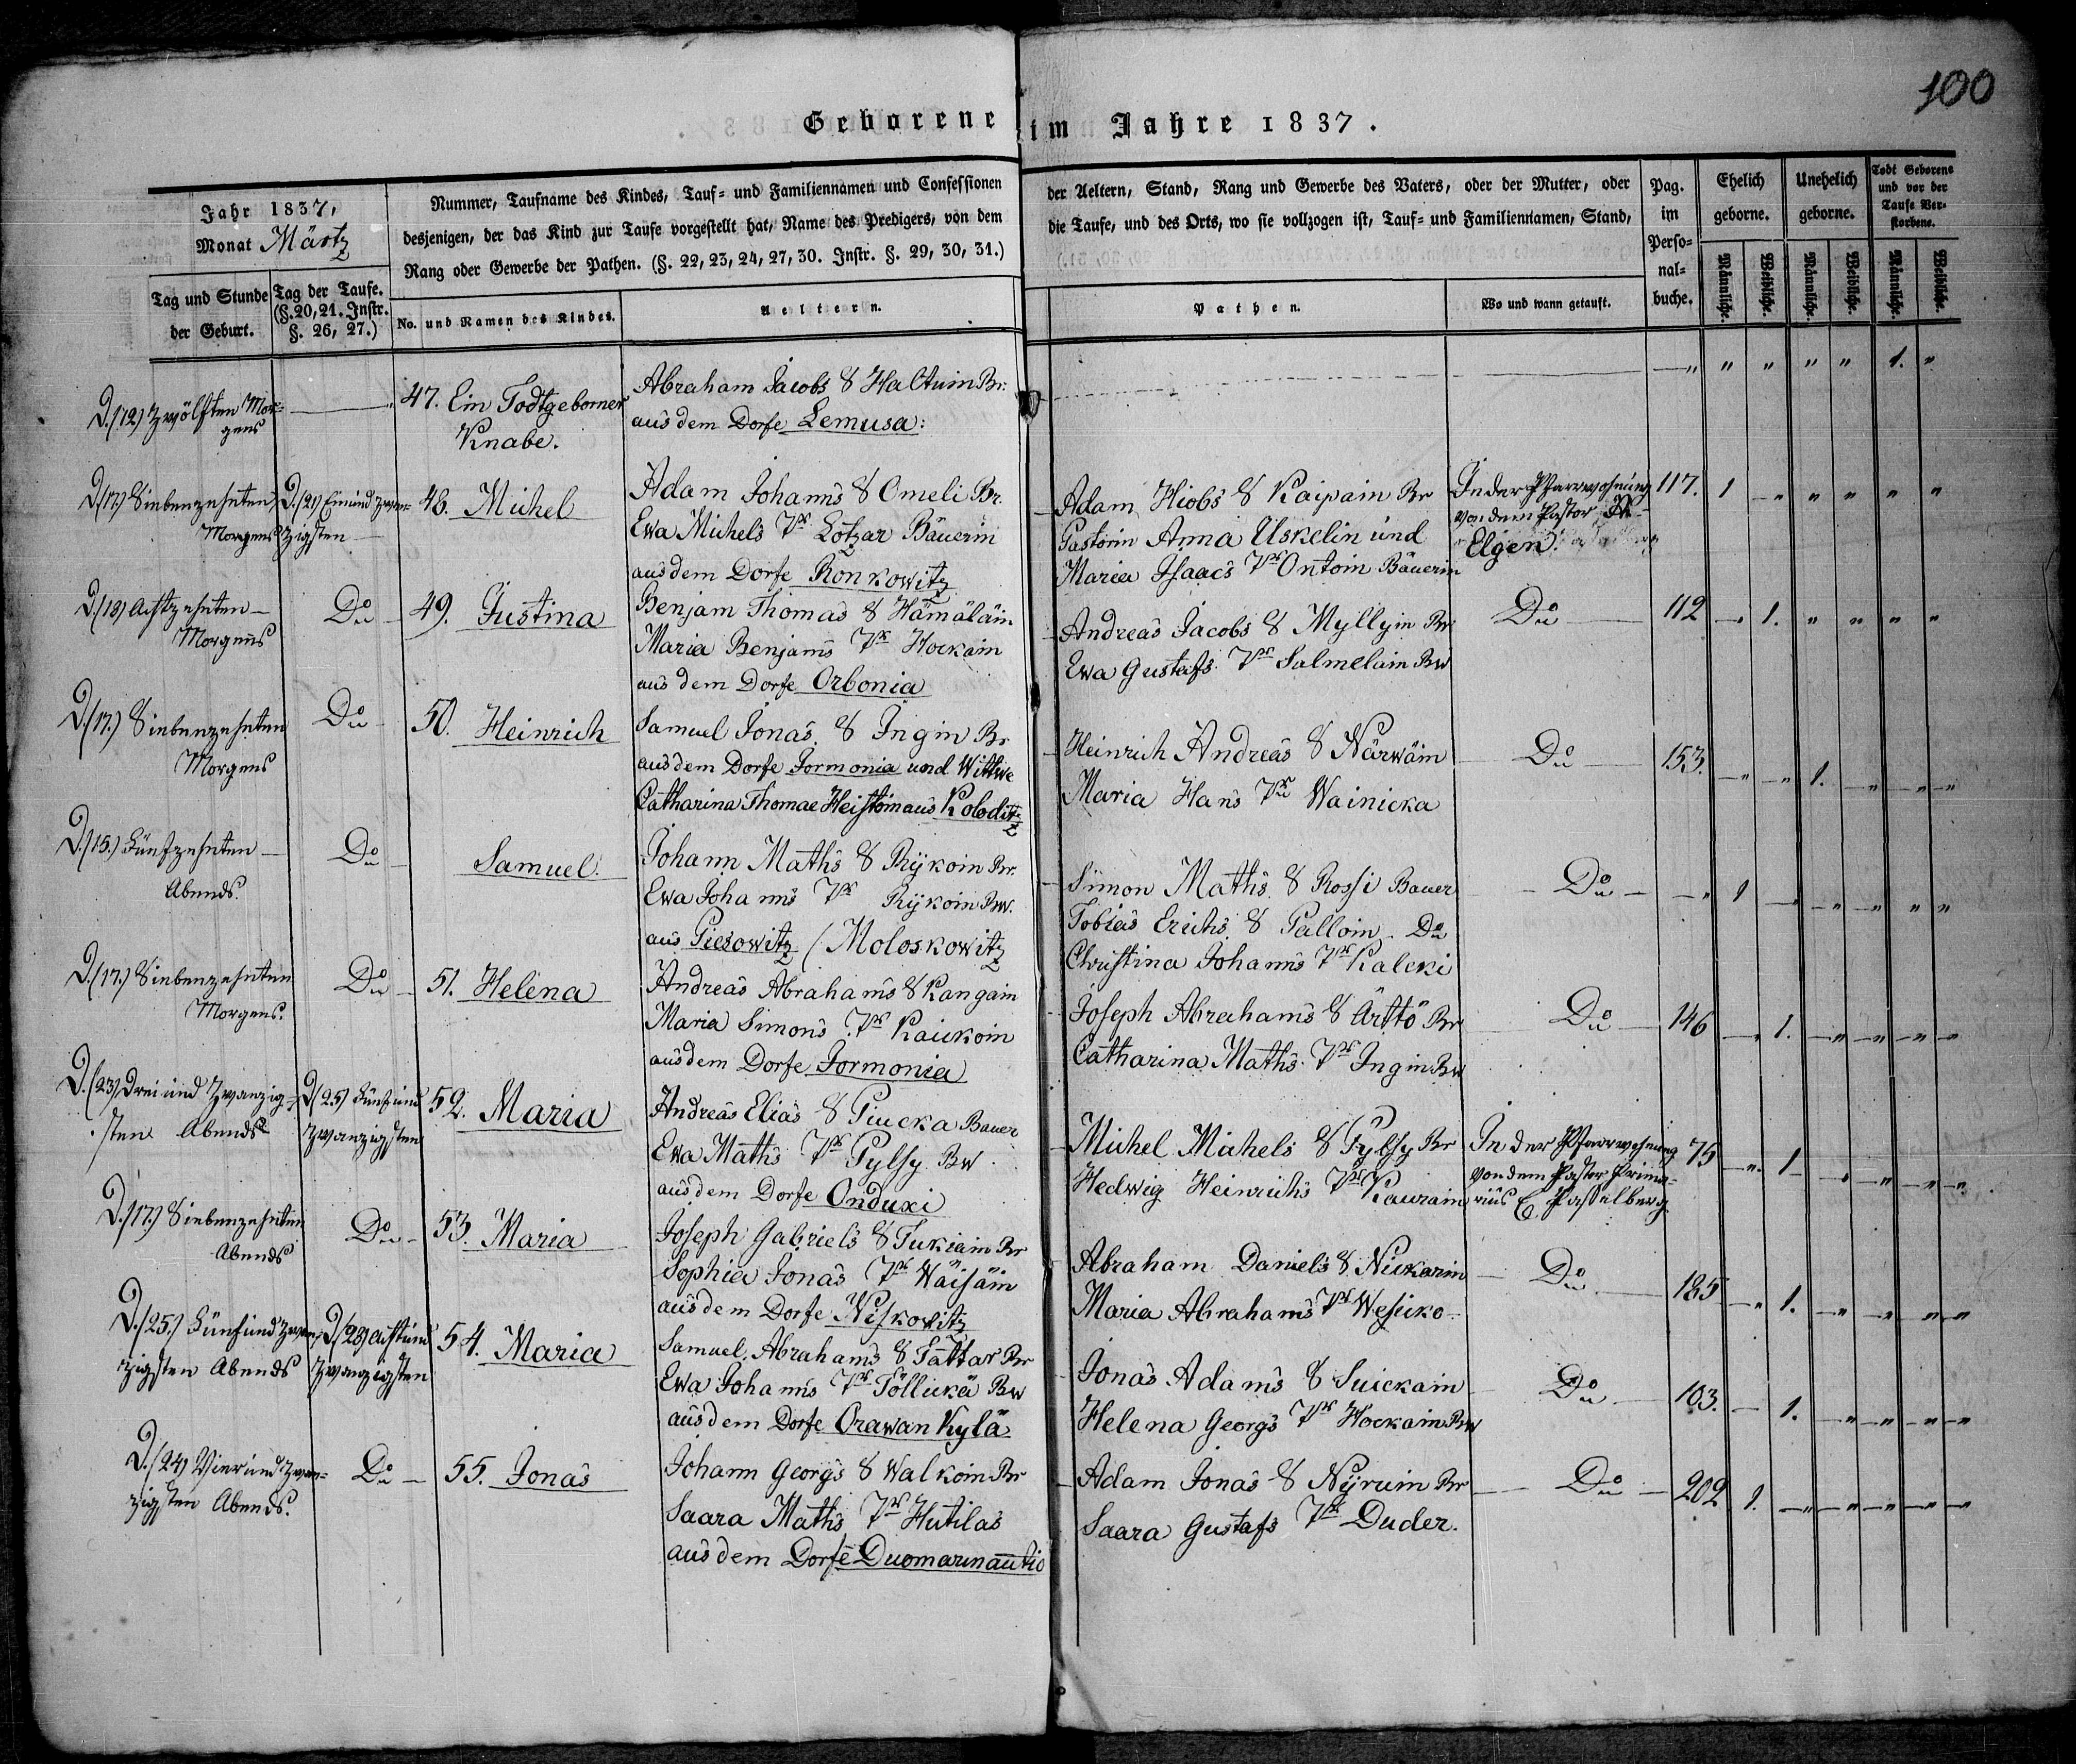 100
Geborene im Jahre 1837.
Jahr 1837,
Monat Märtz
Nummer, Taufname des Kindes, Tauf- und Familiennamen und Confessionen
der Aeltern, Stand, Rang und Gewerbe des Vaters, oder der Mutter, oder
desjenigen, der das Kind zur Taufe vorgestellt hat, Name des Predigers, von dem
die Taufe, und des Orts, wo sie vollzogen ist, Tauf- und Familiennamen, Stand,
Rang oder Gewerbe der Pathen. (§. 22, 23, 24, 27, 30. Instr. §. 29, 30, 31.)
Pag.
im
Perso-
nal-
buche.
Ehelich
geborne.
Unehelich
geborne.
Todt Geborene
und vor der
Taufe Ver-
storbene.
Tag und Stunde
der Geburt.
Tag der Taufe.
(§. 20, 21. Instr.
§. 26, 27.)
No. und Namen des Kindes.
Aeltern.
Pathen.
Wo und wann getauft.
Männliche.
Weibliche.
Männliche.
Weibliche.
Männliche.
Weibliche.
D. (12) Zwölften Mor-
gens
47. Ein Todtgeborner
Knabe.
Abraham Jacobs S Haltuin Br:
aus dem Dorfe Lemusa:
" " " " " 1. "
D. (17.) Siebenzehnten
Morgens
D. (21) Einundzwan-
zigsten
48. Michel
Adam Johanns S Omeli Br.
Ewa Michels Tr Lötzar Bäuerin
aus dem Dorfe Ronkowitz
Adam Hiobs S Kaipain Br
Pastorin Anna Uskelin und
Maria Isaacs Tr Ontoin Bäuerin
In der Pfarrwohnung
von dem Pastor
Elgen.
117. 1 " " " " "
D. (18) Achtzehnten
Morgens
Do
49. Justina
Benjam Thomas S Hämäläin
Maria Benjams Tr Hockain
aus dem Dorfe Orbonia
Andreas Jacobs S Myllyin Br
Ewa Gustafs Tr Salmelain Bw
Do
112 " 1. " " " "
D. (17.) Siebenzehnten
Morgens
Do
50. Heinrich
Samuel Jonas S Ingin Br
aus dem Dorfe Jormonia und Wittwe
Catharina Thomae Heistoin aus Koloditz
Heinrich Andreas S Närwäin
Maria Hans Tr Wainicka
Do
153. " " 1. " " "
D. (15.) Fünfzehnten
Abends.
Do
Samuel.
Johann Maths S Rijkoin Br.
Ewa Johanns Tr Rijkoin Bw.
aus Piesowitz (Moloskowitz
Simon Maths S Rossi Bauer
Tobias Erichs S Palloin Do
Christina Johanns Tr Kalcki
Do
" 1 " " " " "
D. (17.) Siebenzehnten
Morgens.
Do
51. Helena
Andreas Abrahams S Kangain
Maria Simons Tr Kaickoin
aus dem Dorfe Jormonia
Joseph Abrahams S Ärttö Br
Catharina Maths Tr Ingin Bw
Do
146 " 1. " " " "
D. (23) Drei und Zwanzig-
sten Abends
D. (25) Fünfund
zwanzigsten
52. Maria
Andreas Elias S Piucka Bauer
Ewa Maths Tr Pylsy Bw
aus dem Dorfe Onduxi
Michel Michels S Pylsy Br
Hedwig Heinrichs Tr Kaurain
In der Pfarrwohnung
von dem Pastor Prima-
rius C. Passelberg.
75 " 1 " " " "
D. (17.) Siebenzehnten
Abends
Do
53. Maria
Joseph Gabriels S Tukiain Br
Sophia Jonas Tr Wäisäin
aus dem Dorfe Wiskowitz
Abraham Daniels S Nickarin
Maria Abrahams Tr Wesiko
Do
185 " 1. " " " "
D. (25.) Fünfundzwan-
zigsten Abends
D. (28) Achtund
zwanzigsten
54. Maria
Samuel Abrahams S Tattar Br
Ewa Johanns Tr Töllickä Bw
aus dem Dorfe Orawan Kylä
Jonas Adams S Suickain
Helena Georgs Tr Hockain Bw
Do
103. 1. " " " "
D. (24) Vierundzwan-
zigsten Abends.
Do
55. Jonas
Johann Georgs S Walkoin Br
Saara Maths Tr Hutilas
aus dem Dorfe Duomarinautio
Adam Jonas S Nyruin Br
Saara Gustafs Tr Duder.
Do
202 1. " " " " "